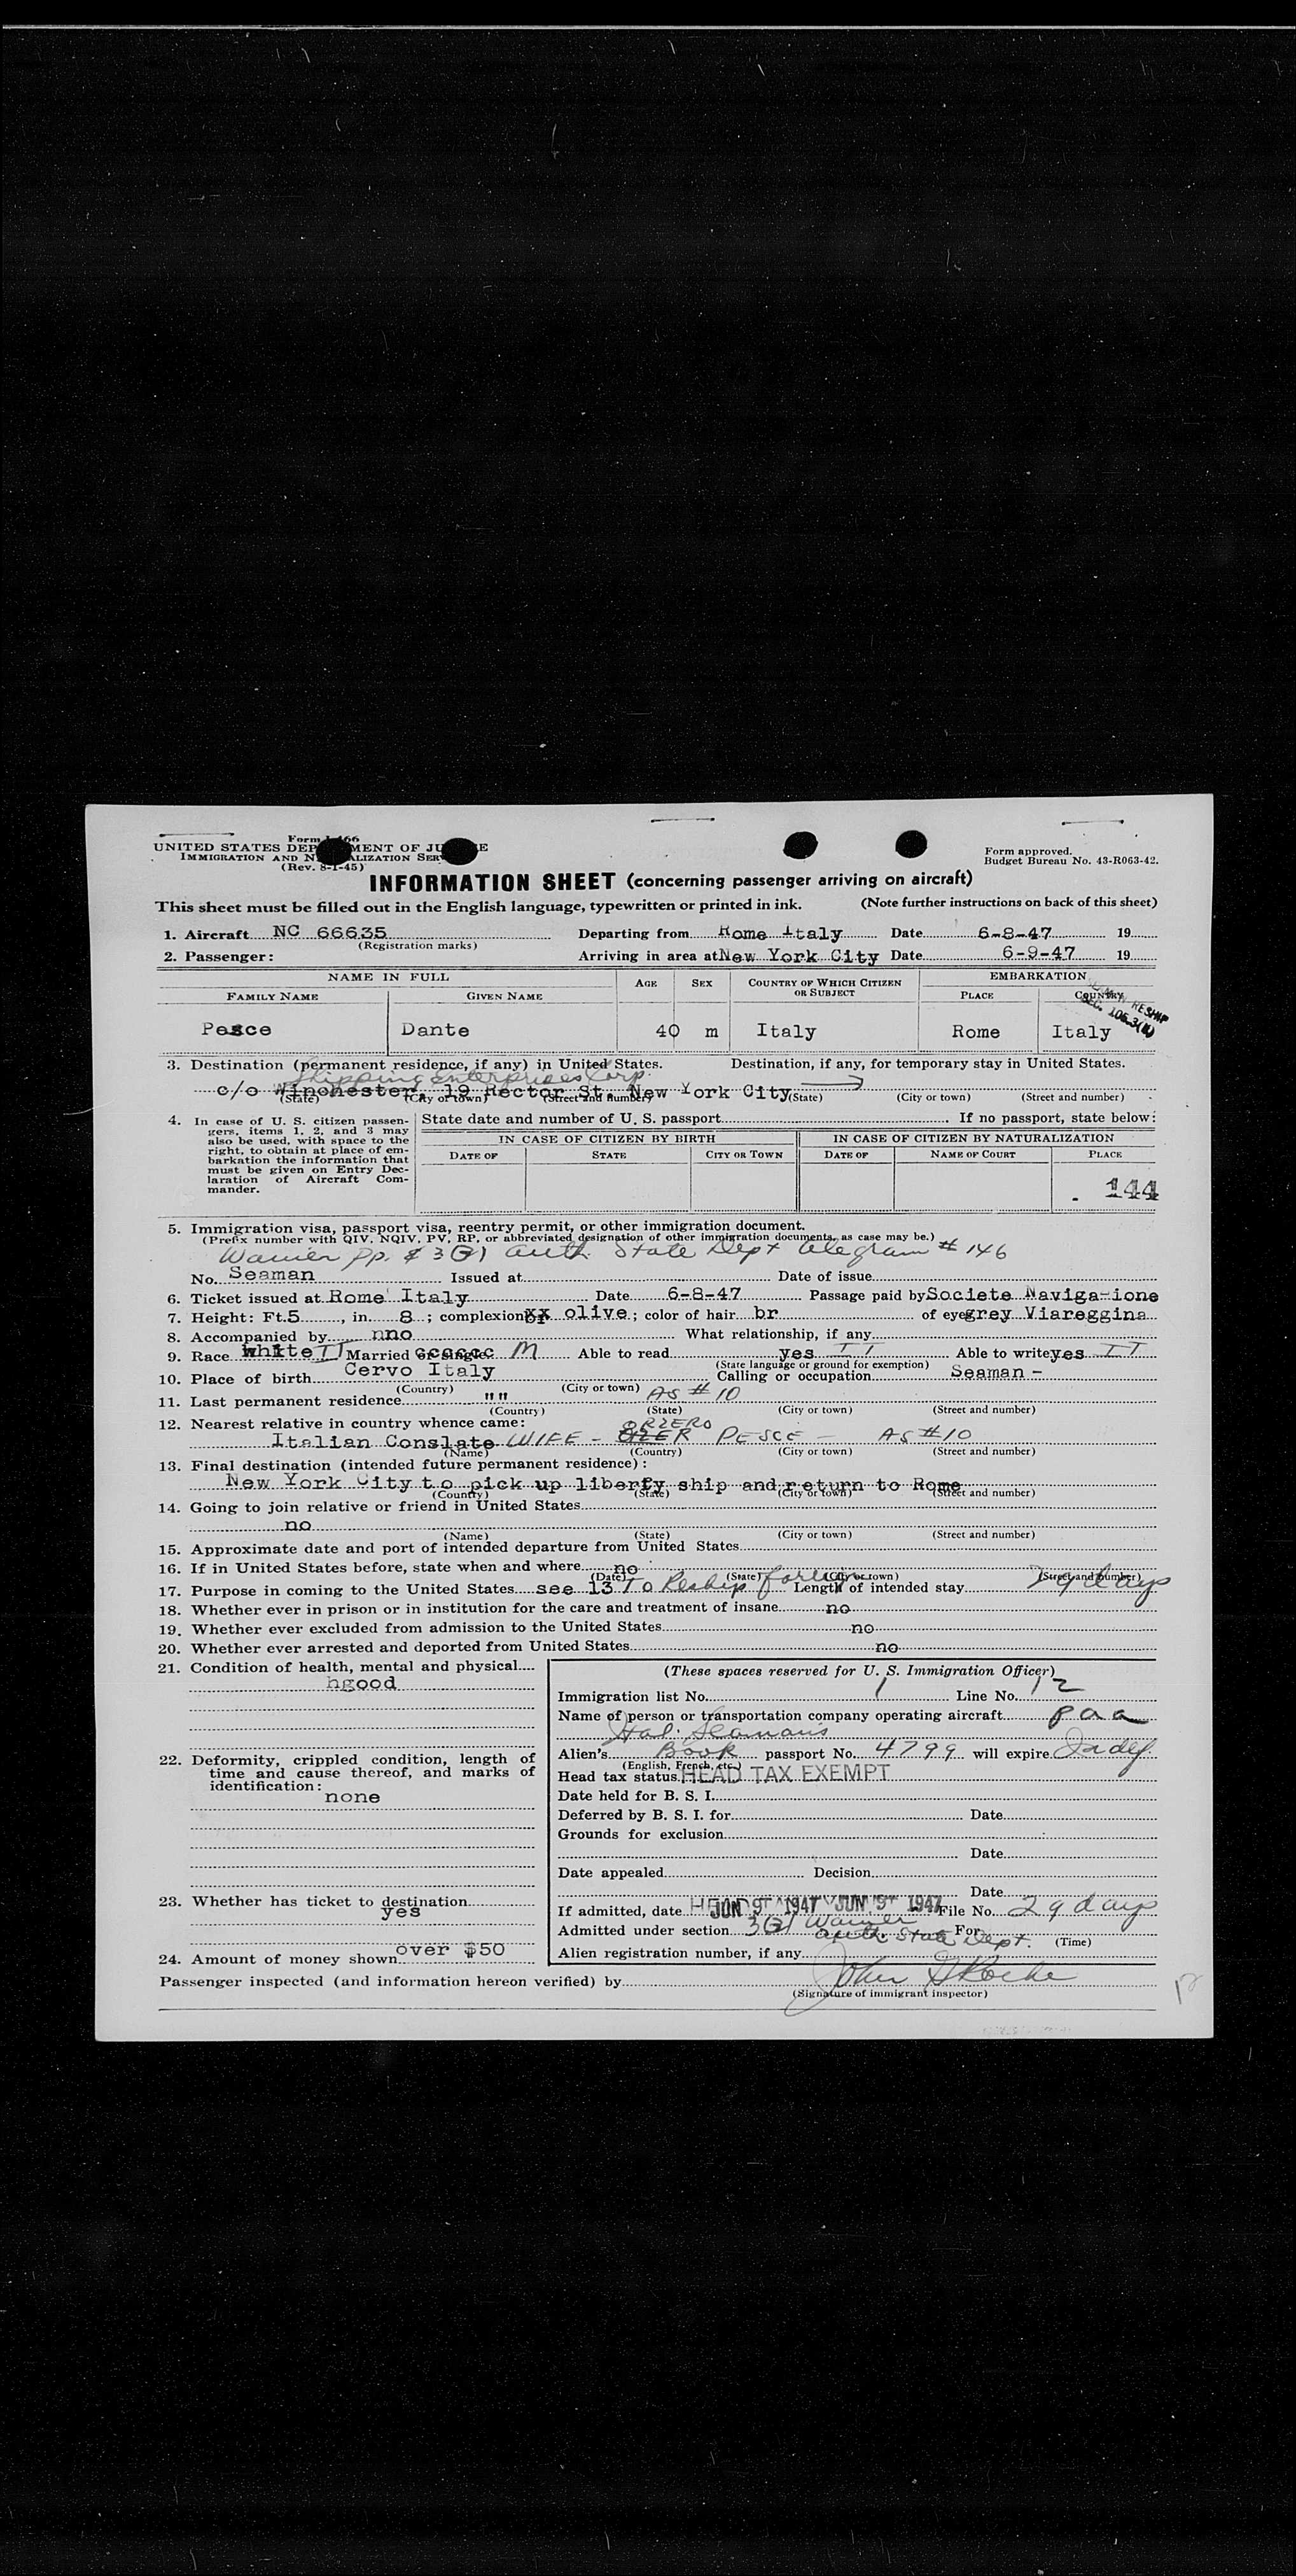 Form I-466
UNITED STATES DEPARTMENT OF JUSTICE
IMMIGRATION AND NATURALIZATION SERVICE
(Rev. 8-1-45)
Form approved.
Budget Bureau No. 43-R063-42.
INFORMATION SHEET (concerning passenger arriving on aircraft)
This sheet must be filled out in the English language, typewritten or printed in ink. (Note further instructions on back of this sheet)
1. Aircraft NC 66635 Departing from Rome Italy Date 6-8-47 19
(Registration marks)
2. Passenger: Arriving in area at New York City Date 6-9-47 19
NAME IN FULL AGE SEX COUNTRY OF WHICH CITIZEN OR SUBJECT EMBARKATION
FAMILY NAME GIVEN NAME PLACE COUNTRY
RESHIP
SEC. 105.3(b)
Pesce Dante 40 m Italy Rome Italy
3. Destination (permanent residence, if any) in United States. Destination, if any, for temporary stay in United States.
Shipping Enterprises Corp.
c/o Winchester, 19 Rector St. New York City
(State) (City or town) (Street and number) (State) (City or town) (Street and number)
4. In case of U. S. citizen passengers, items 1, 2, and 3 may also be used, with space to the right, to obtain at place of embarkation the information that must be given on Entry Declaration of Aircraft Commander.
State date and number of U. S. passport If no passport, state below:
IN CASE OF CITIZEN BY BIRTH IN CASE OF CITIZEN BY NATURALIZATION
DATE OF STATE CITY OR TOWN DATE OF NAME OF COURT PLACE
144
5. Immigration visa, passport visa, reentry permit, or other immigration document.
(Prefix number with QIV, NQIV, PV, RP, or abbreviated designation of other immigration documents, as case may be.)
Waiver pp. & 3(5) auth. State Dept telegram #146
No. Seaman Issued at Date of issue
6. Ticket issued at Rome Italy Date 6-8-47 Passage paid by Societe Navigazione
7. Height: Ft. 5, in. 8; complexion xx olive; color of hair br of eye grey Viareggina
8. Accompanied by nno What relationship, if any
9. Race white IT Married or single M Able to read yes IT Able to write yes IT
(State language or ground for exemption)
10. Place of birth Cervo Italy Calling or occupation Seaman -
(Country) (City or town)
11. Last permanent residence "" As #10
(Country) (State) (City or town) (Street and number)
12. Nearest relative in country whence came:
ORZERO
Italian Conslate WIFE - PESCE - AS #10
(Name) (Country) (City or town) (Street and number)
13. Final destination (intended future permanent residence):
New York City to pick up liberty ship and return to Rome
(Country) (State) (City or town) (Street and number)
14. Going to join relative or friend in United States
no
(Name) (State) (City or town) (Street and number)
15. Approximate date and port of intended departure from United States
16. If in United States before, state when and where no
(Date) (State) (City or town) (Street and number)
17. Purpose in coming to the United States see 13 To Reship foreign Length of intended stay 29 days
18. Whether ever in prison or in institution for the care and treatment of insane no
19. Whether ever excluded from admission to the United States no
20. Whether ever arrested and deported from United States no
21. Condition of health, mental and physical
hgood
22. Deformity, crippled condition, length of time and cause thereof, and marks of identification:
none
23. Whether has ticket to destination
yes
24. Amount of money shown over $50
(These spaces reserved for U. S. Immigration Officer)
Immigration list No. 1 Line No. 12
Name of person or transportation company operating aircraft paa
Ital. Seamans
Alien's Book passport No. 4799 will expire Indef.
(English, French, etc.)
Head tax status HEAD TAX EXEMPT
Date held for B. S. I.
Deferred by B. S. I. for Date
Grounds for exclusion
Date
Date appealed Decision
Date
If admitted, date JUN 9 1947 JUN 9 1947 File No. 29 days
Admitted under section 3(5) Waiver For
auth. State Dept. (Time)
Alien registration number, if any
Passenger inspected (and information hereon verified) by John Roche
(Signature of immigrant inspector)
12